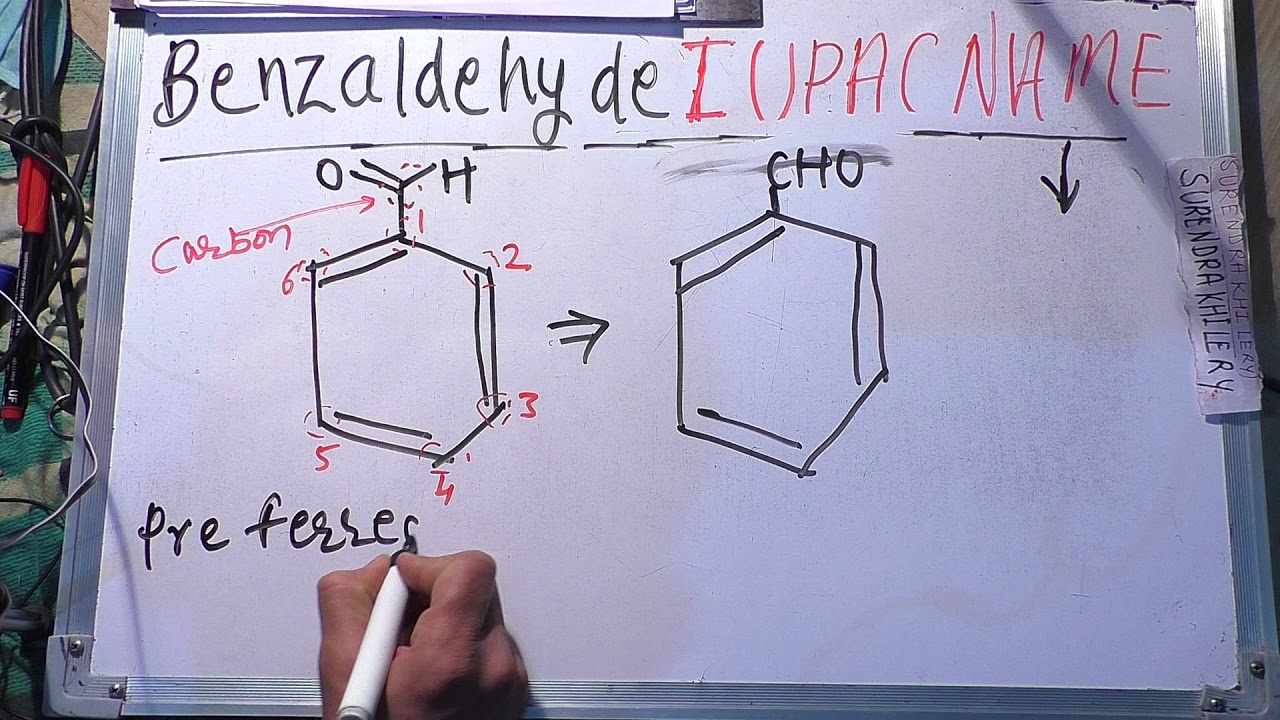 Benzaldehyde IUPAC NAME
O H
CHO
1
Carbon
6
2
3
5
4
Preferre
SURENDRA KHILERY
SURENDRA KHILERY
UF